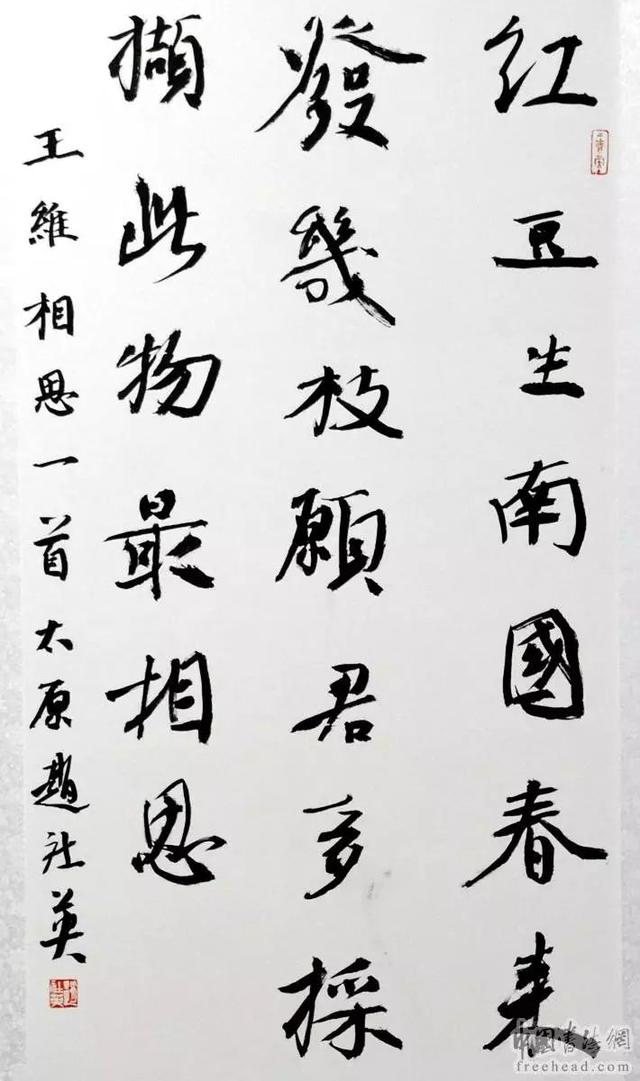 红豆生南國春来
發幾枝願君多採
擷此物最相思
王維相思一首太原趙社英
中國书法網
freehead.com